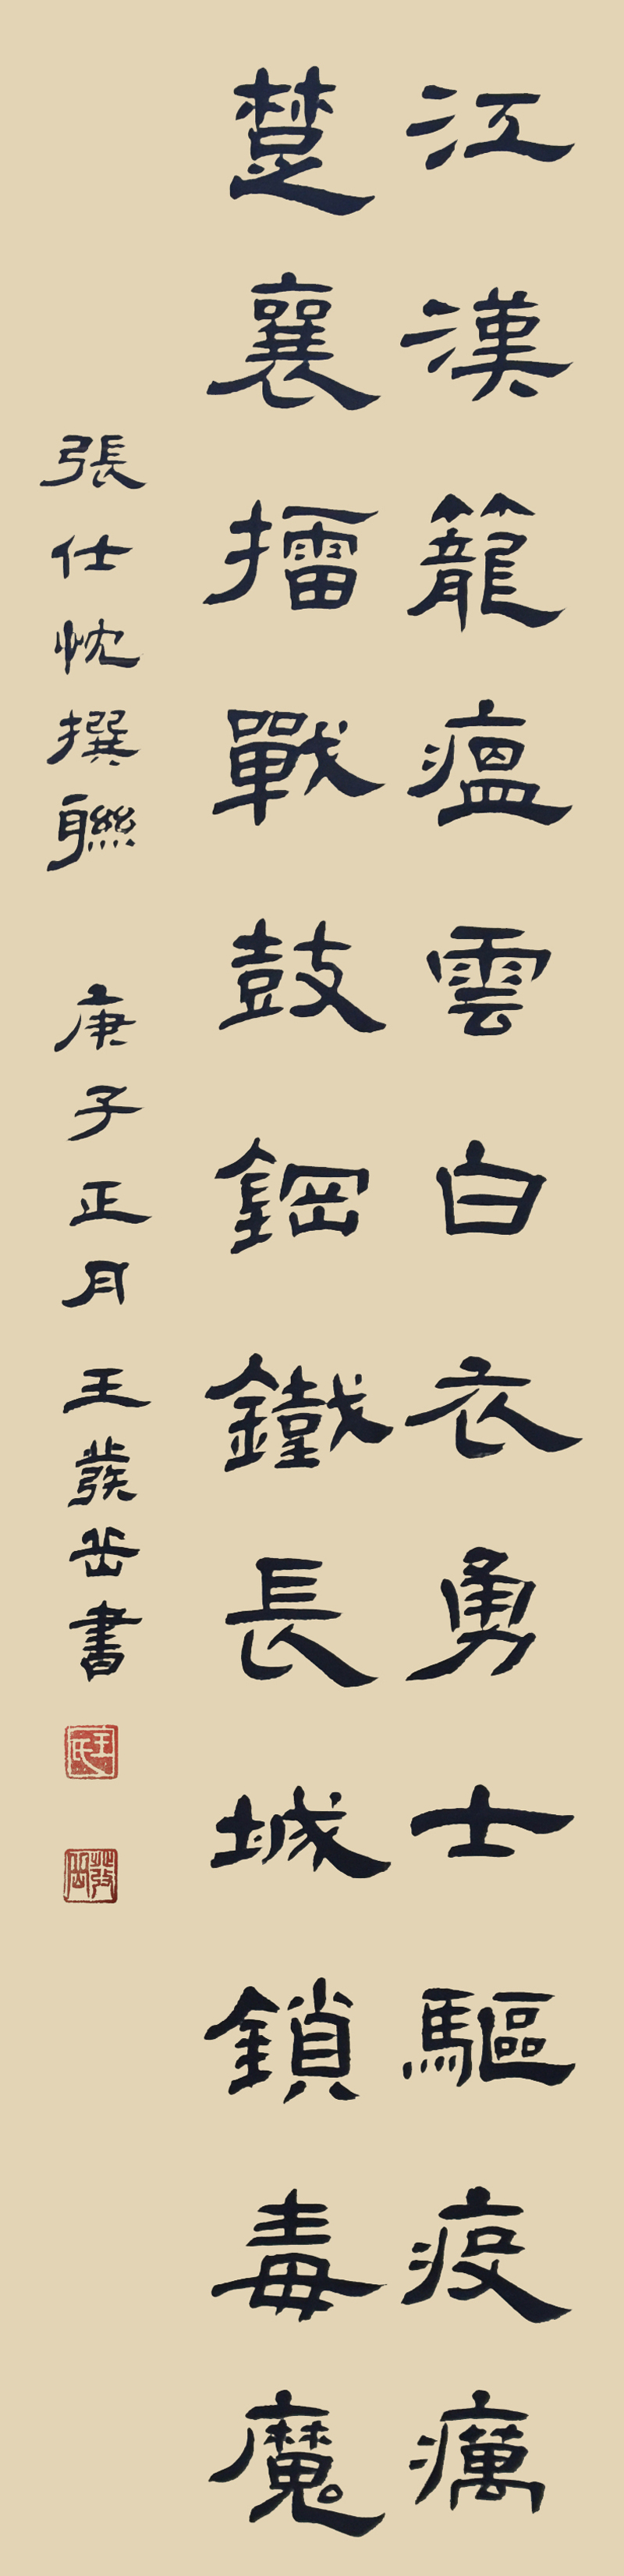 江漢籠瘟雲白衣勇士驅疫癘
楚襄擂戰鼓鋼鐵長城鎖毒魔
張仕忱撰聯 庚子正月 王發岳書
王氏
發岳